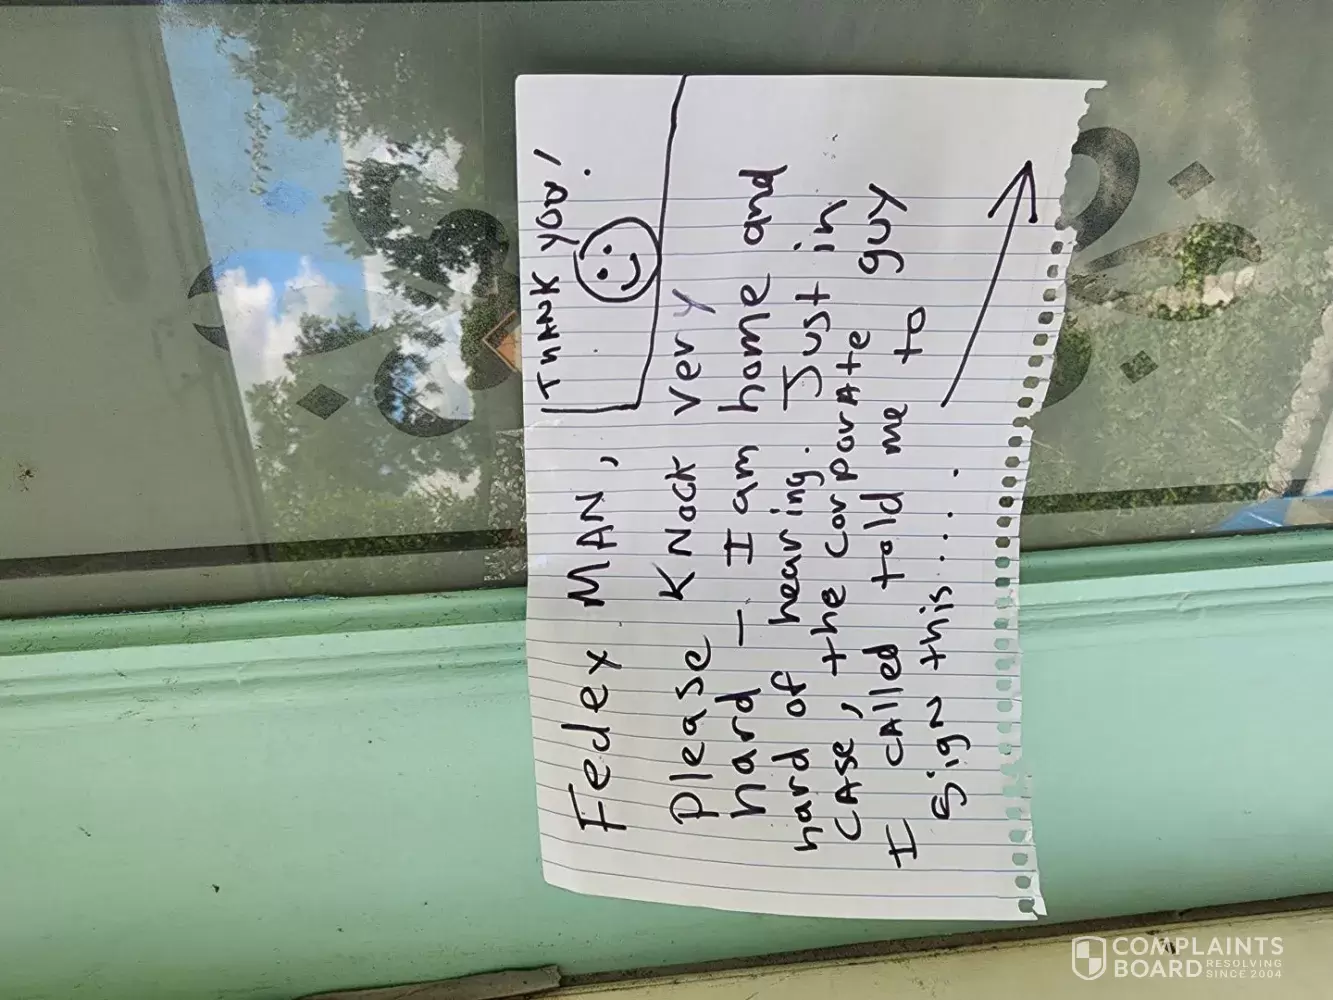 Fedex MAN,
THANK YOU!
Please KNock very
hard — I am home and
hard of hearing. Just in
CASE, the corporate guy
I called told me to
sign this....
COMPLAINTS
BOARD RESOLVING
SINCE 2004